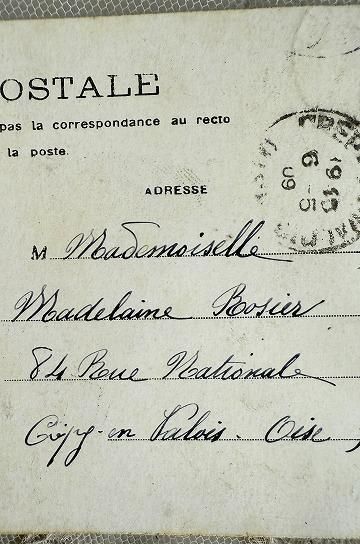 OSTALE
pas la correspondance au recto
la poste.
ADRESSE
19 10
6 - 5
09
M Mademoiselle
Madelaine Rosier
84 Rue Nationale
Crépy-en Valois. Oise